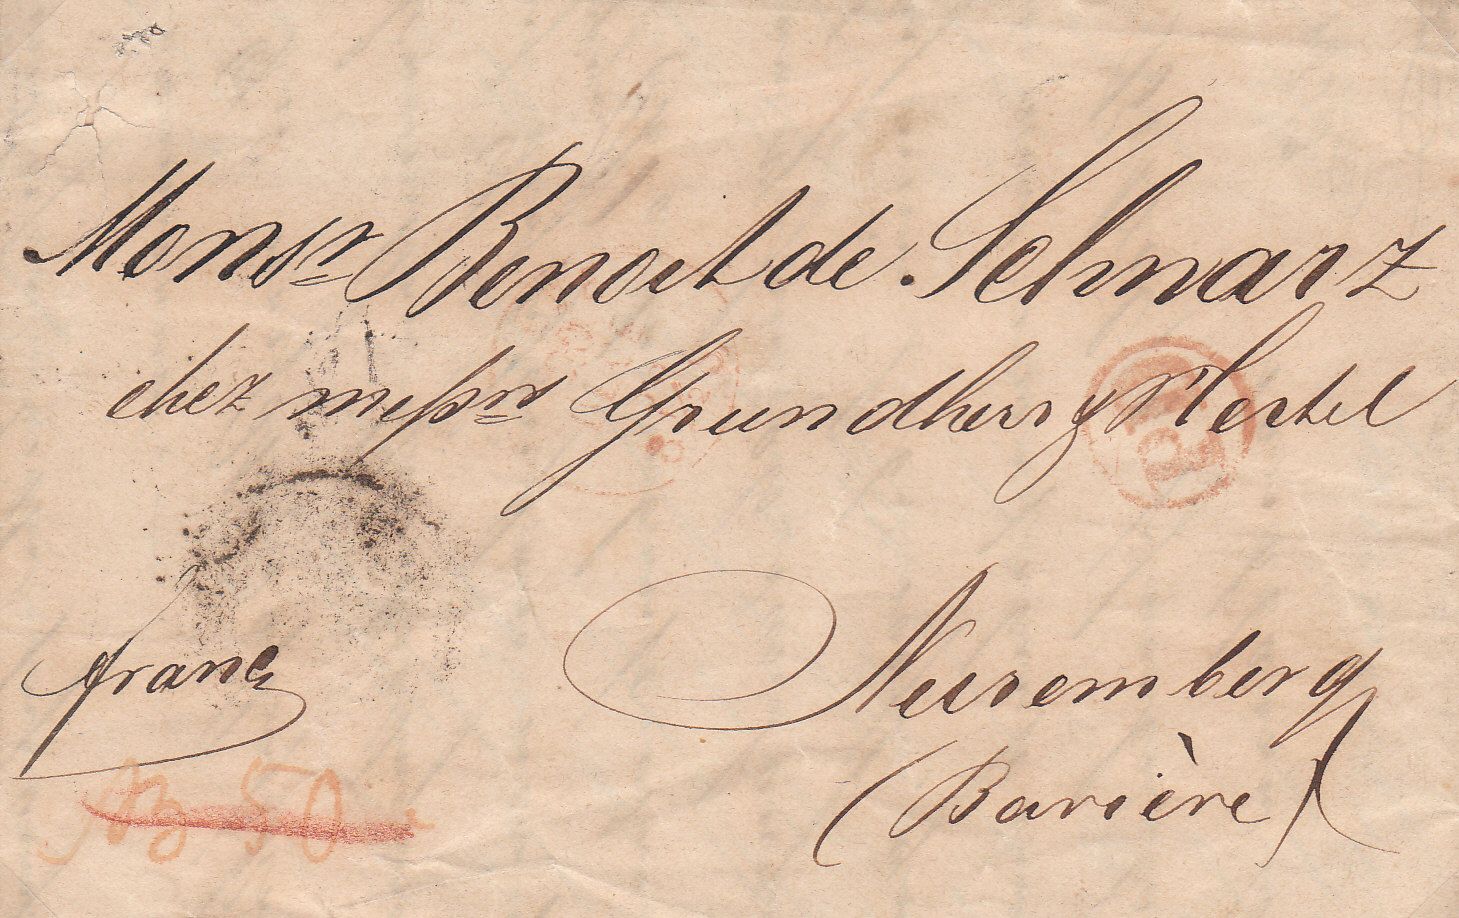 Monsr Benoit de Schwarz
chez messrs Grundherr & Hertel
franc
Nuremberg
(Bavière)
No 50
PD